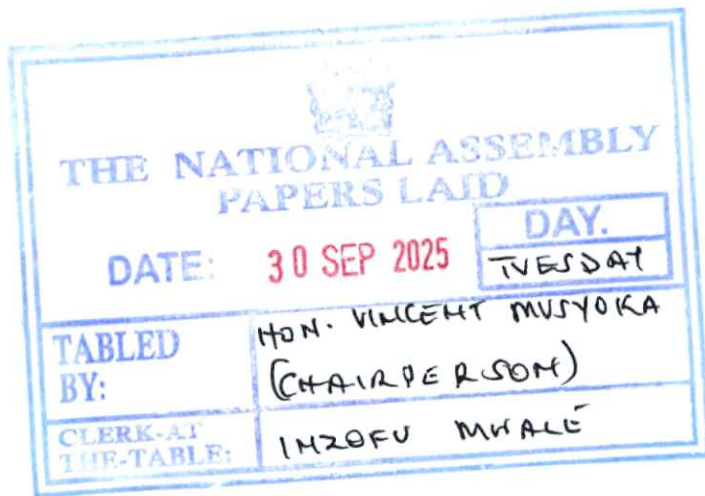 THE NATIONAL ASSEMBLY
PAPERS LAID
DAY.
DATE: 30 SEP 2025 TUESDAY
TABLED BY: HON. VINCENT MUSYOKA
(CHAIRPERSON)
CLERK-AT
THE-TABLE: INZOFU MWALE